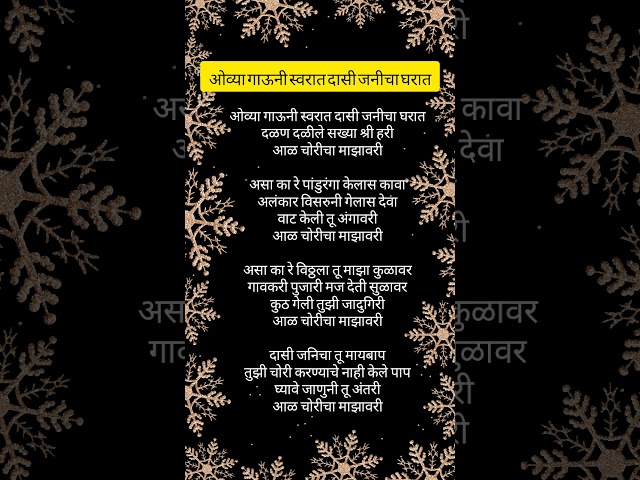 ओव्या गाऊनी स्वरात दासी जनीचा घरात
ओव्या गाऊनी स्वरात दासी जनीचा घरात
दळण दळीले सख्या श्री हरी
आळ चोरीचा माझावरी
असा का रे पांडुरंगा केलास कावा
अलंकार विसरुनी गेलास देवा
वाट केली तू अंगावरी
आळ चोरीचा माझावरी
असा का रे विठ्ठला तू माझा कुळावर
गावकरी पुजारी मज देती सुळावर
कुठ गेली तुझी जादुगिरी
आळ चोरीचा माझावरी
दासी जनिचा तू मायबाप
तुझी चोरी करण्याचे नाही केले पाप
घ्यावे जाणुनी तू अंतरी
आळ चोरीचा माझावरी